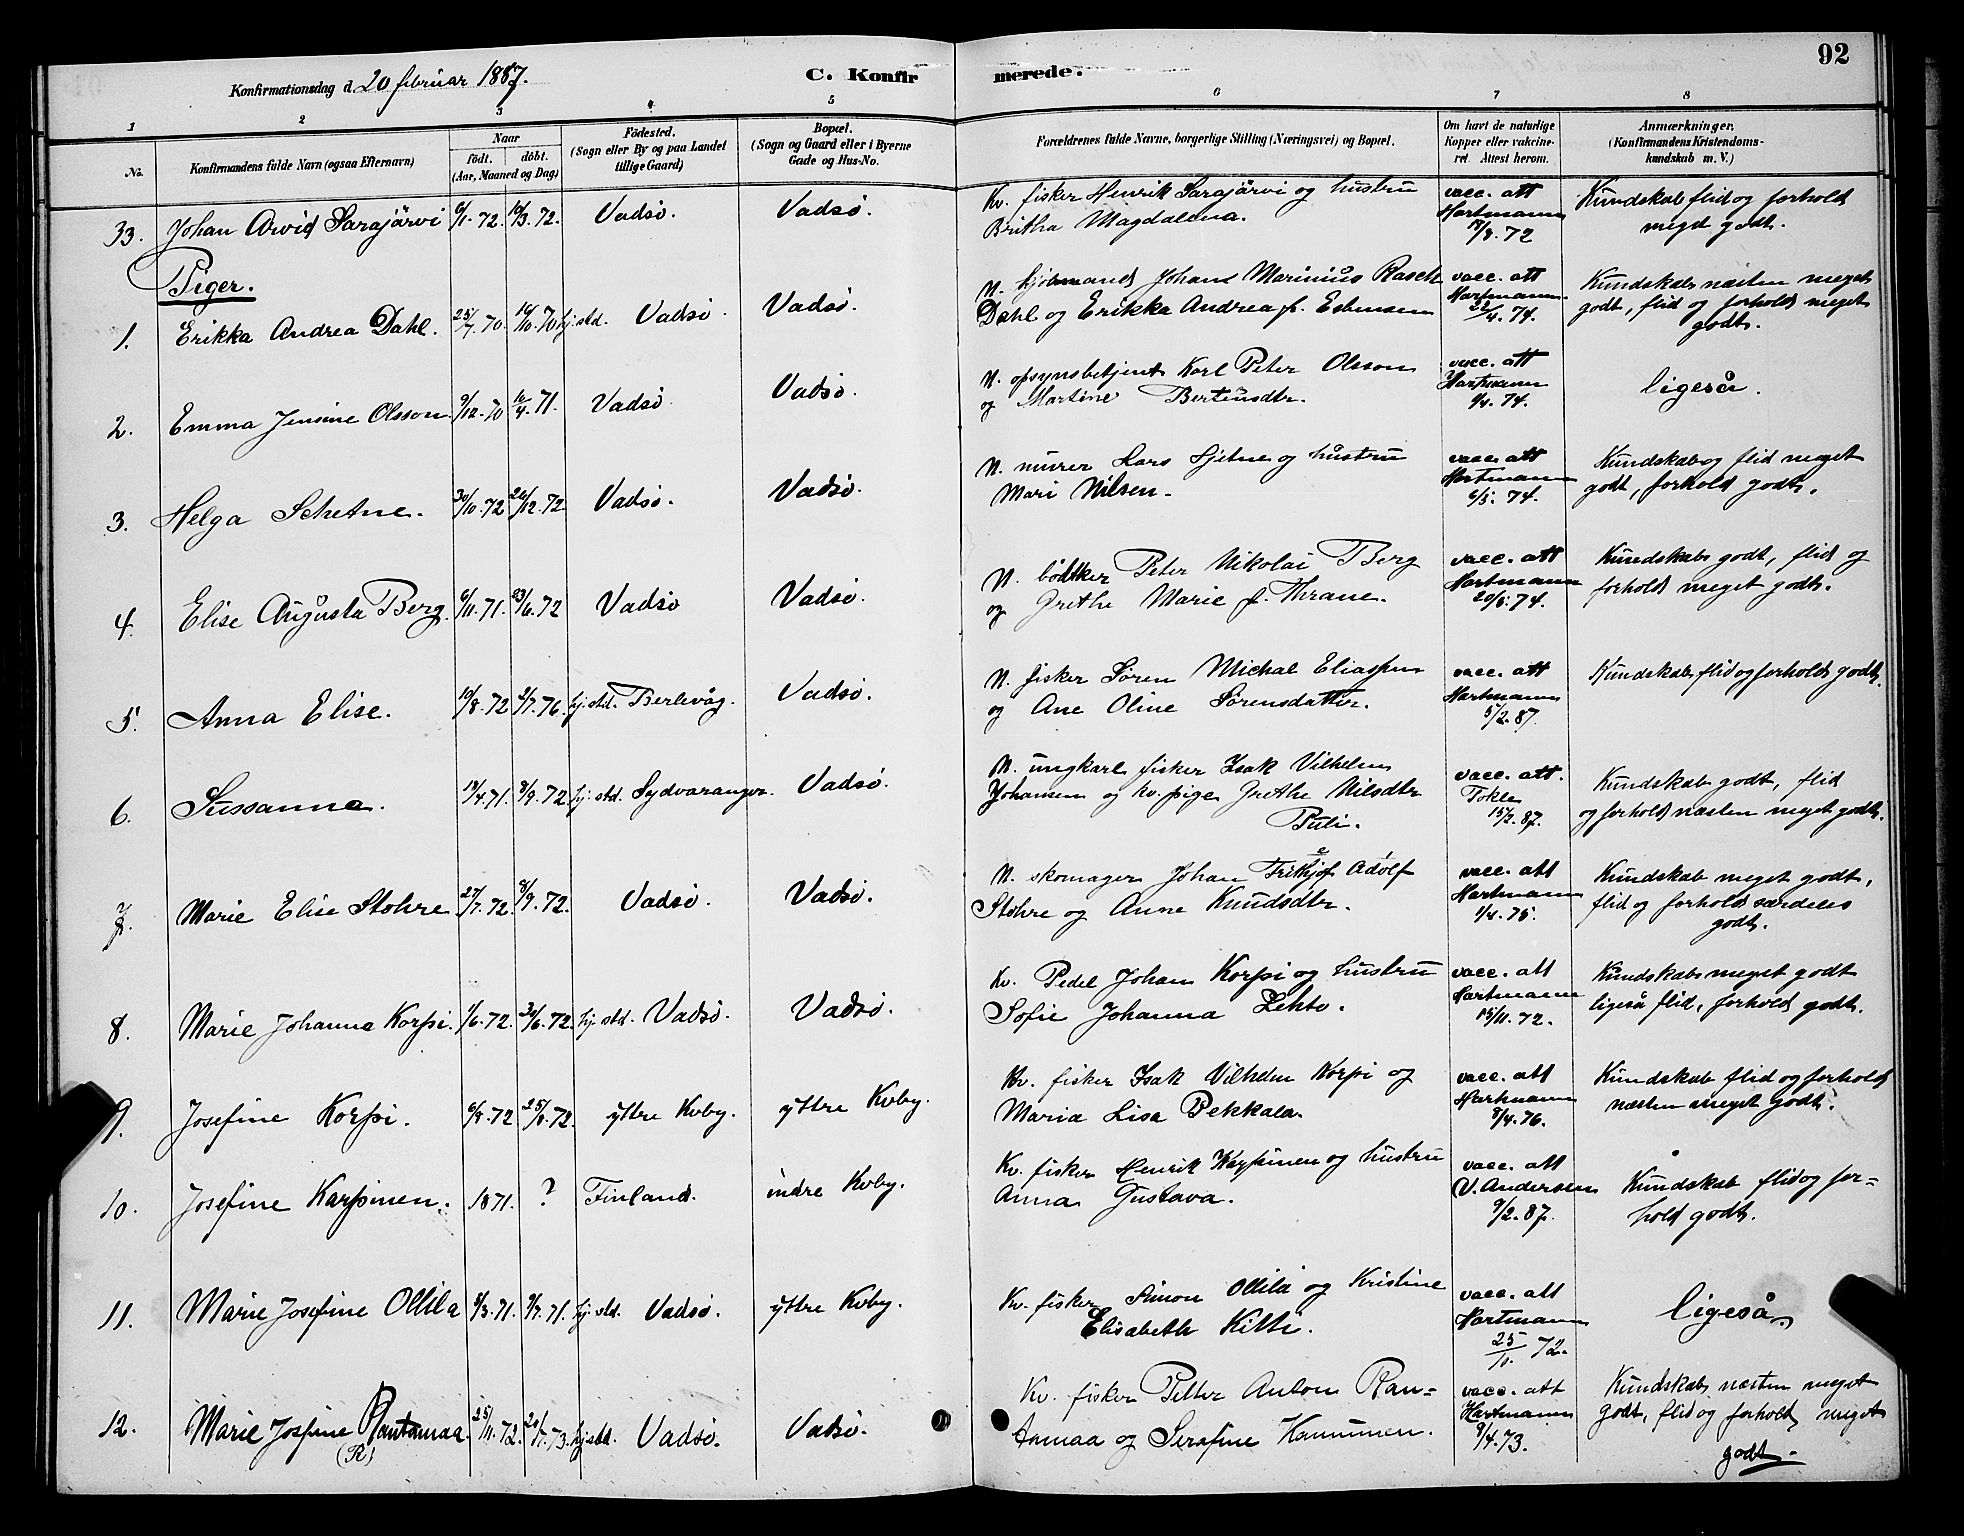 92
Konfirmationsdag d. 20 februar 1887.
C. Konfirmerede.
1 2 3 4 5 6 7 8
No.
Konfirmandens fulde Navn (ogsaa Efternavn)
Naar
födt. döbt.
(Aar, Maaned og Dag)
Födested.
(Sogn eller By og paa Landet
tillige Gaard)
Bopæl.
(Sogn og Gaard eller i Byerne
Gade og Hus-No.
Forældrenes fulde Navne, borgerlige Stilling (Næringsvei) og Bopæl.
Om havt de naturlige
Kopper eller vakcine-
ret. Attest herom.
Anmærkninger.
(Konfirmandens Kristendoms-
kundskab m. V.)
33. Johan Arvid Sarajärvi 6/1.72 10/3.72. Vadsö. Vadsö.
Kv. fisker Henrik Sarajärvi og hustru
Britha Magdalena.
vacc. att
Hartmann
17/8.72
Kundskab flid og forhold
meget godt.
Piger.
1. Erikka Andrea Dahl. 25/7.70. 16/10.70 hj. std. Vadsö. Vadsö.
N. kjöbmand Johans Marinius Rasch
Dahl og Erikka Andrea f. Esbensen
vacc. att
Hartmann
22/4.74.
Kundskab næsten meget
godt, flid og forhold meget
godt.
2. Emma Jensine Olsson 9/12.70 16/4.71. Vadsö. Vadsö.
N. opsynsbetjent Karl Peter Olsson
og Martine Bertinsdtr.
vacc. att
Hartmann
9/4.74.
ligeså.
3. Helga Schetne. 30/10.72 26/12.72 Vadsö. Vadsö.
N. murer Lars Sjetne og hustru
Mari Nilsen.
vacc. att
Hartmann
6/5.74.
Kundskab og flid meget
godt, forhold godt.
4. Elise Augusta Berg. 6/11.71. 23/6.72 Vadsö Vadsö.
N. bödtker Peter Nikolai Berg
og Grethe Marie f. Thrane.
vacc. att
Hartmann
20/5.74.
Kundskab godt, flid og
forhold meget godt.
5. Anna Elise. 19/8.72 2/7.76. hj. std. Berlevåg. Vadsö.
N. fisker Sören Michal Eliassen
og Ane Oline Sörensdatter.
vacc. att
Hartmann
5/2.87.
Kundskab, flid og forhold godt.
6. Sussanna. 18/4.71. 8/9.72 hj. std. Sydvaranger. Vadsö.
N. ungkarl fisker Isak Vilhelm
Johansen og kv. pige Grethe Nilsdtr
Puli.
vacc. att.
Tokle
15/2.87.
Kundskab godt, flid
og forhold næsten meget godt.
7. Marie Elise Stohre 27/7.72. 8/9.72. Vadsö. Vadsö.
N. skomager Johan Frithjof Adolf
Stohre og Anne Knudsdtr.
vacc. att
Hartmann
1/4.75.
Kundskab meget godt,
flid og forhold særdeles
godt.
8. Marie Johanna Korpi. 1/6.72. 30/6.72. hj. std. Vadsö. Vadsö.
Kv. Pedel Johan Korpi og hustru
Sofie Johanna Lehto.
vacc. att
Hartmann
15/11.72.
Kundskab meget godt
ligeså flid, forhold godt.
9. Josefine Korpi. 6/8.72 25/8.72. yttre Kvby. yttre Kvby.
Kv. fisker Isak Vilhelm Korpi og
Maria Lisa Pekkala.
vacc. att
Hartmann
8/4.76.
Kundskab flid og forhold
næsten meget godt.
10. Josefine Karpinen. 1871. ? Finland. indre Kvby.
Kv. fisker Henrik Karpinen og hustru
Anna Gustava.
vacc. att
V. Andersen
9/2.87.
Kundskab flid og for-
hold godt.
11. Marie Josefine Ollila 8/3.71. 9/7.71. hj. std. Vadsö. yttre Kvby.
Kv. fisker Simon Ollila og Kristine
Elisabeth Kitti.
vacc. att
Hartmann
25/10.72.
ligeså.
12. Marie Josefine Rantamaa. 25/11.72. 20/7.73. hj. std. Vadsö. Vadsö.
(R)
Kv. fisker Petter Anton Ran-
tamaa og Serafine Hannunen.
vacc. att
Hartmann
9/4.73.
Kundskab næsten meget
godt, flid og forhold meget
godt.